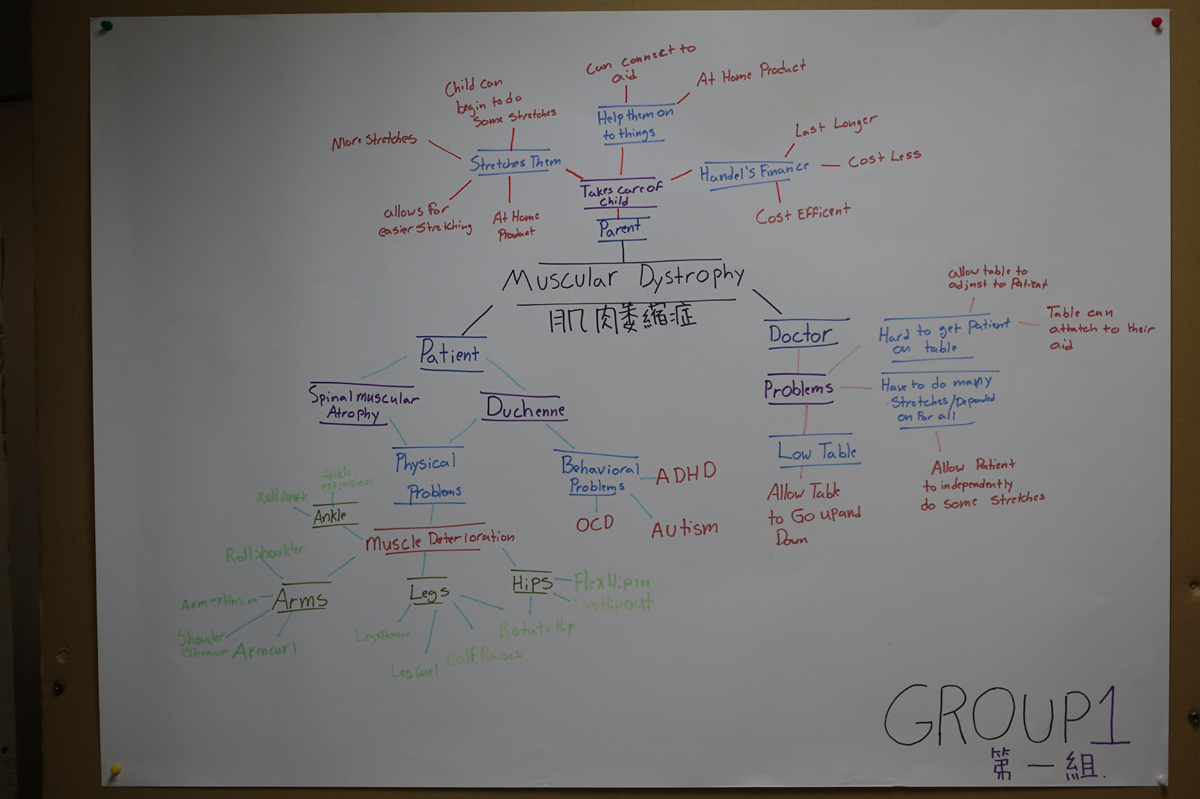 Can connect to
aid
At Home Product
Child can
begin to do
Some stretches
Help them on
to things
More Stretches
Stretches Them
Last Longer
Handel's Finance
Cost Less
Takes care of
child
allows for
easier Stretching
At Home
Product
Cost Efficent
Parent
Muscular Dystrophy
肌肉萎縮症
Patient
Spinal muscular
Atrophy
Duchenne
Physical
Problems
Behavioral
Problems
ADHD
OCD
Autism
Muscle Deterioration
Ankle
extension
Roll Ankle
Ankle
Roll Shoulder
Arms
Arm curl
Legs
Leg curl
Calf Raises
Hips
Flex Hip in
Flex Hip out
Rotate Hip
Doctor
Problems
Low Table
Allow Table
to Go up and
Down
Hard to get Patient
on table
allow table to
adjust to Patient
Table can
attatch to their
aid
Have to do many
Stretches/Depended
on for all
Allow Patient
to independently
do some Stretches
GROUP1
第一組.